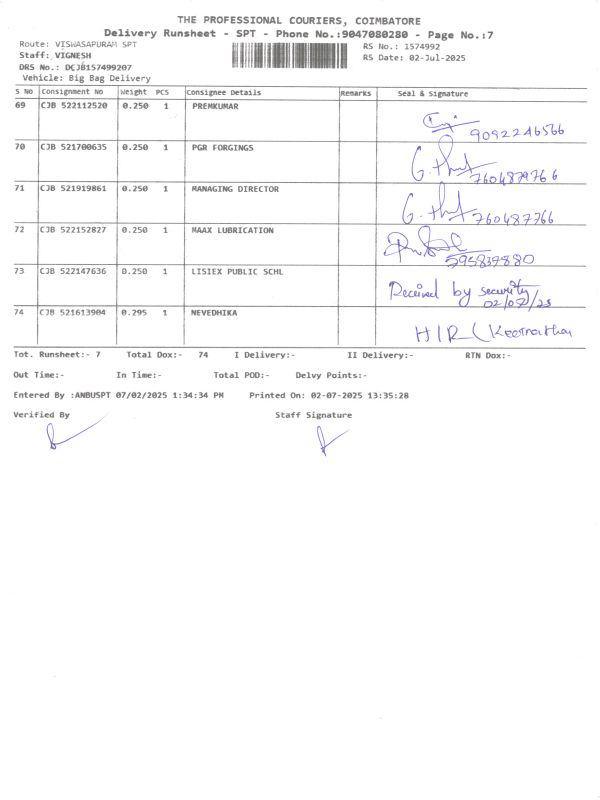 THE PROFESSIONAL COURIERS, COIMBATORE
Delivery Runsheet - SPT - Phone No.:9047080280 - Page No.:7
Route: VISWASAPURAM SPT RS No.: 1574992
Staff: VIGNESH RS Date: 02-Jul-2025
DRS No.: DCJB157499207
Vehicle: Big Bag Delivery
S No Consignment No Weight PCS Consignee Details Remarks Seal & Signature
69 CJB 522112520 0.250 1 PREMKUMAR
9092246566
70 CJB 521700635 0.250 1 PGR FORGINGS
7604879766
71 CJB 521919861 0.250 1 MANAGING DIRECTOR
760487766
72 CJB 522152827 0.250 1 MAAX LUBRICATION
595837880
73 CJB 522147636 0.250 1 LISIEX PUBLIC SCHL
Received by security
02/07/25
74 CJB 521613904 0.295 1 NEVEDHIKA
H/R (
Tot. Runsheet:- 7 Total Dox:- 74 I Delivery:- II Delivery:- RTN Dox:-
Out Time:- In Time:- Total POD:- Delvy Points:-
Entered By :ANBUSPT 07/02/2025 1:34:34 PM Printed On: 02-07-2025 13:35:28
Verified By Staff Signature